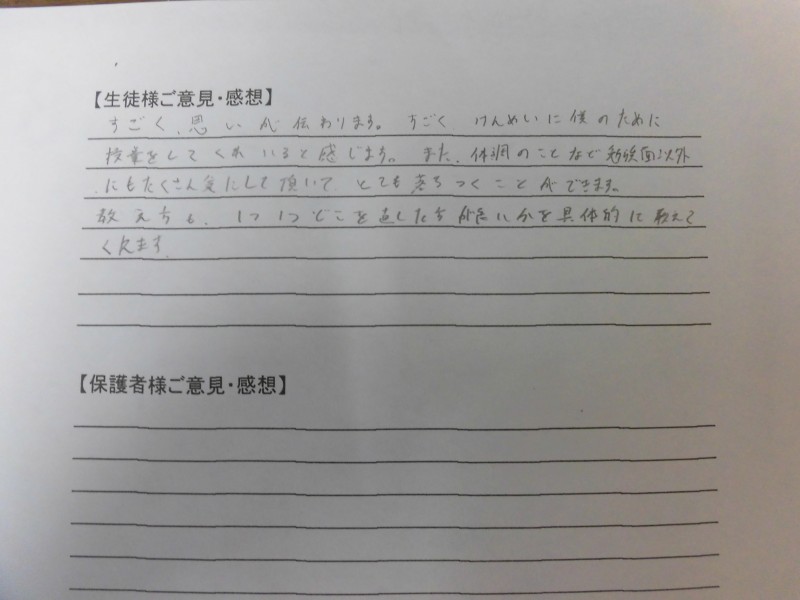 【生徒様ご意見・感想】
すごく、思いが伝わります。すごく けんめいに僕のために
授業をしてくれいると感じます。また、体調のことなど勉強面以外
にもたくさん気にして頂いて、とても落ちつくことができます。
教え方も、1つ1つどこを直した方が良いかを具体的に教えて
くれます。
【保護者様ご意見・感想】